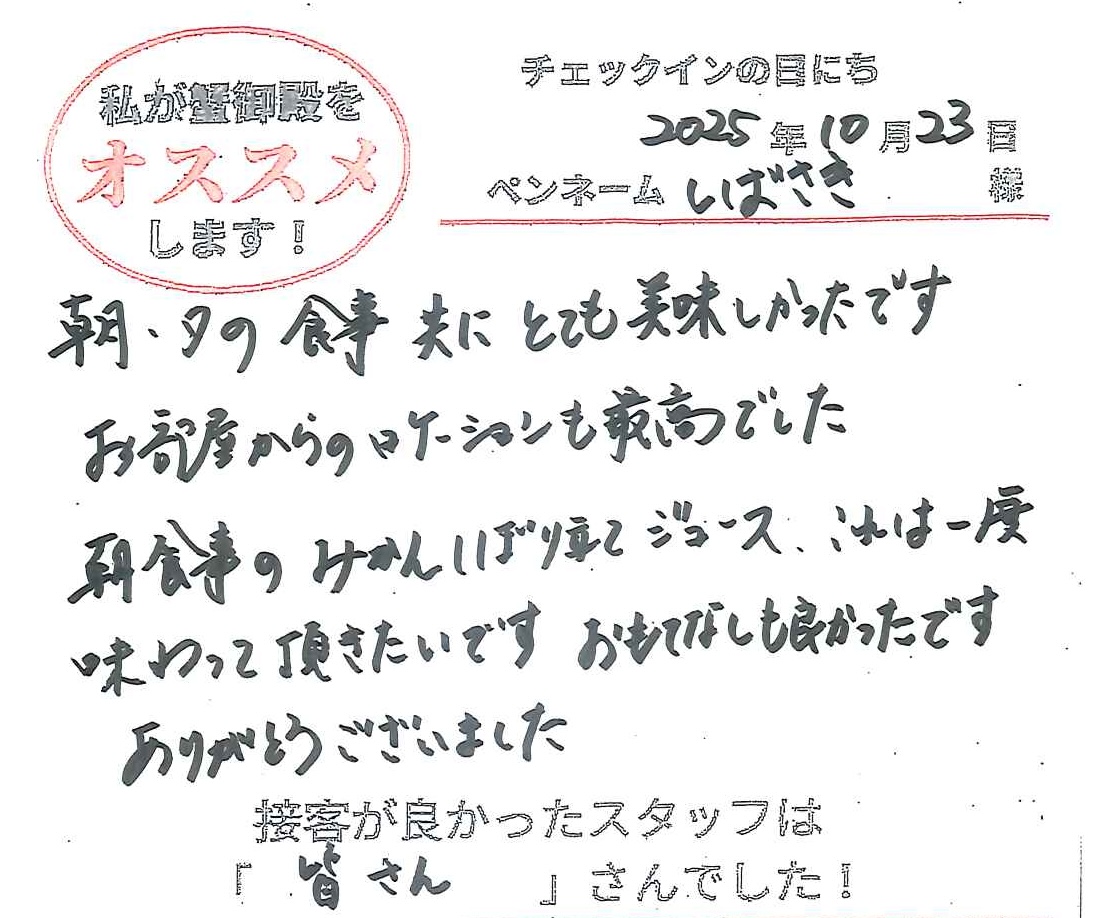 私が蟹御殿を
オススメ
します！
チェックインの日にち
2025年10月23日
ペンネーム いばさき 様
朝・夕の食事 共に とても美味しかったです
お部屋からのロケーションも最高でした
朝食事の みかんしぼり立て ジュース、これは一度
味わって頂きたいです おもてなしも良かったです
ありがとうございました
接客が良かったスタッフは
「 皆さん 」さんでした！